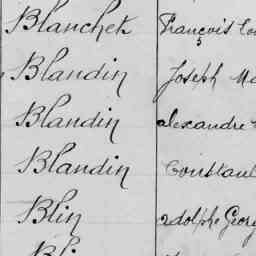 Blanchet François
Blandin Joseph
Blandin alexandre
Blandin Constant
Blin adolphe Georg